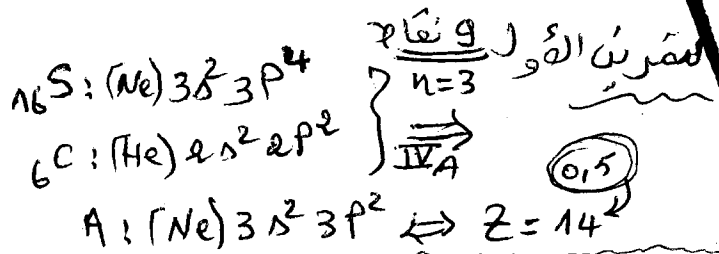 التمرين الأول و نقاط
₁₆S : (Ne) 3s² 3p⁴ n=3
₆C : (He) 2s² 2p² } ⇒ IV_A
0,5
A : (Ne) 3s² 3p² ⇔ Z = 14